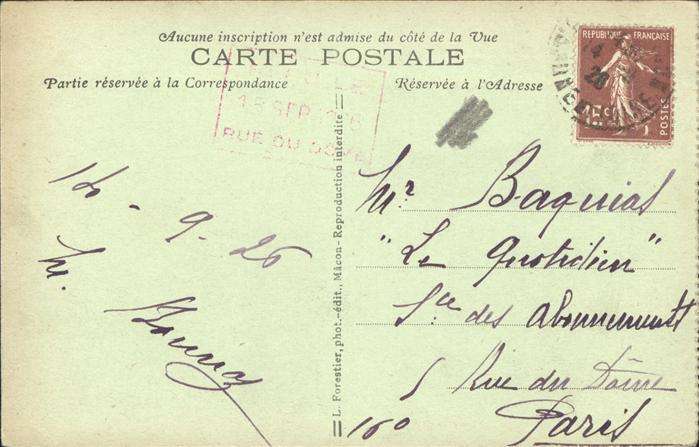 Aucune inscription n'est admise du côté de la Vue
CARTE POSTALE
Partie réservée à la Correspondance
Réservée à l'Adresse
RÉPUBLIQUE FRANÇAISE
POSTES
15 SEP
RUE DU
14-9-26
M.
L. Forestier, phot.-édit., Mâcon - Reproduction interdite
Mr. Baquias
"Le Quotidien"
Sce des abonnements
5 Rue du
Paris